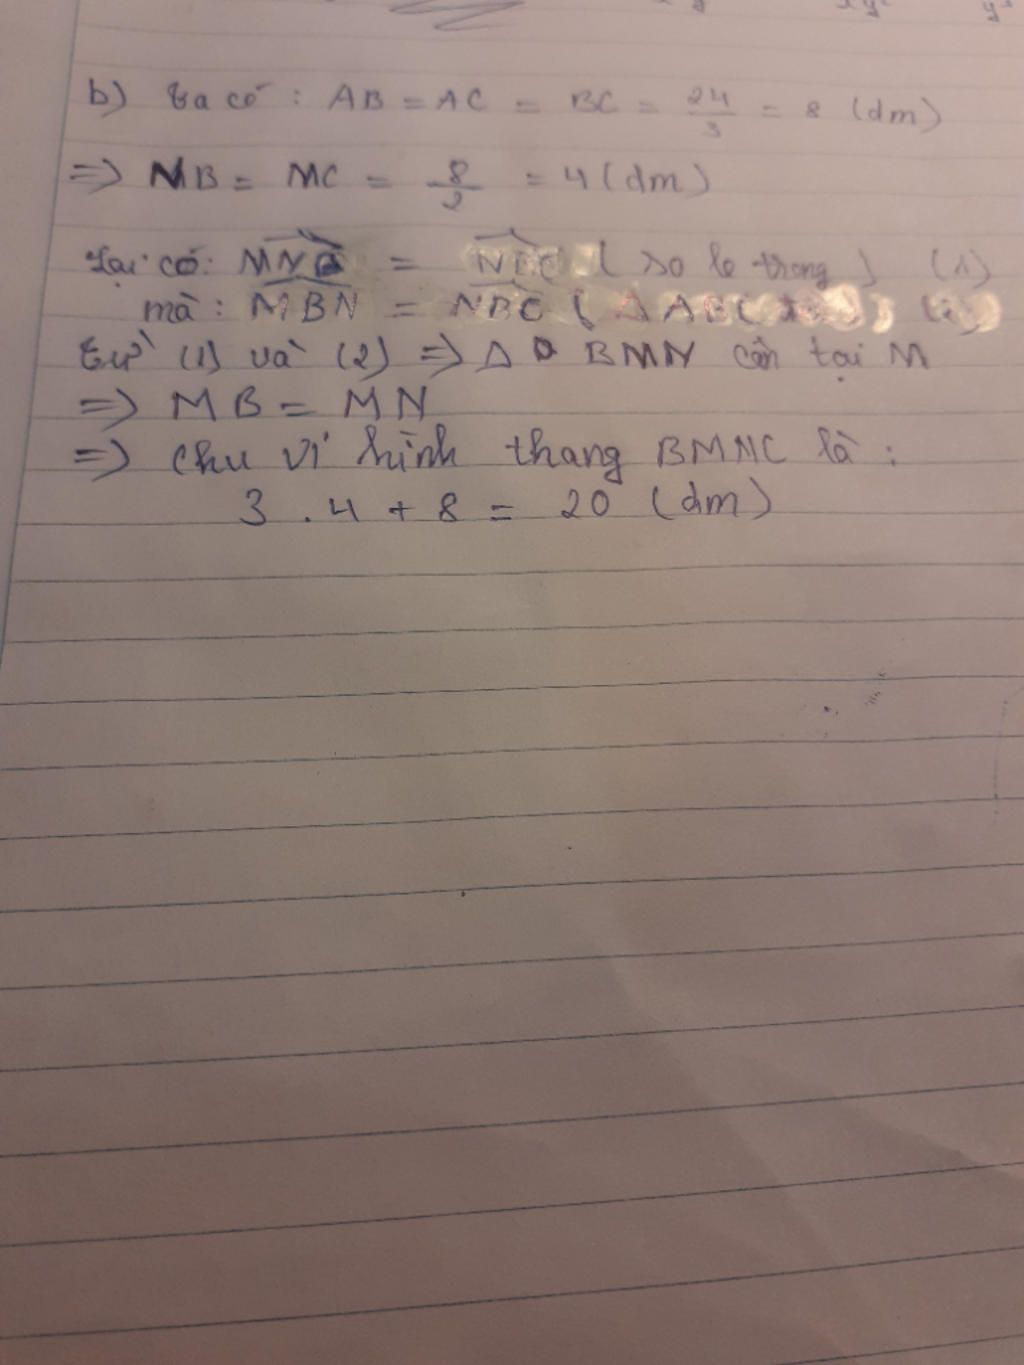 b) Ta có : AB = AC = BC = 24/3 = 8 (dm)
=> MB = MC = 8/2 = 4 (dm)
Lại có: MNB = NBC ( so le trong ) (1)
mà : MBN = NBC ( Δ ABC
Từ (1) và (2) => Δ BMN cân tại M
=> MB = MN
=> Chu vi hình thang BMNC là :
3 . 4 + 8 = 20 (dm)